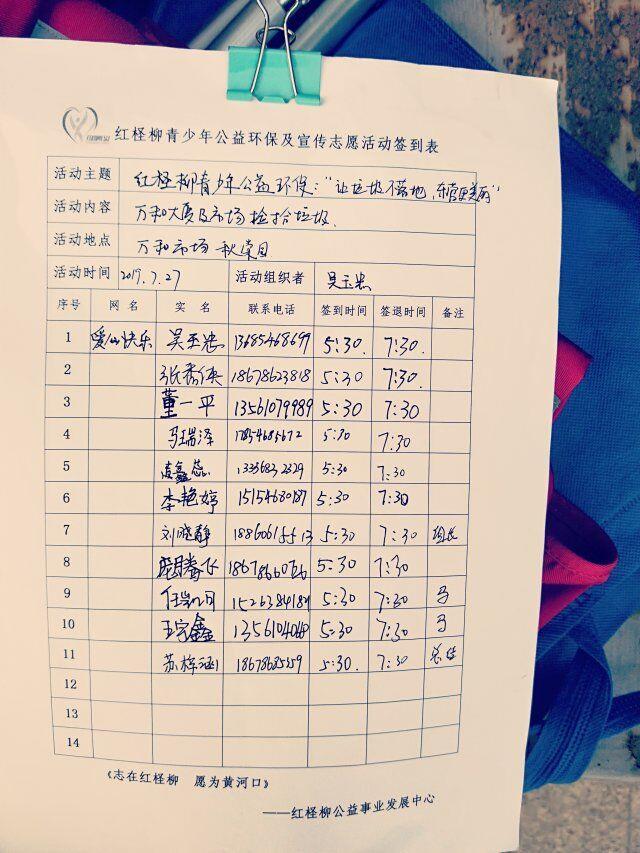 红柽柳青少年公益环保及宣传志愿活动签到表
活动主题 红柽柳青少年公益环保："让垃圾不落地，东营更美丽"
活动内容 万和大厦及市场捡拾垃圾.
活动地点 万和市场
活动时间 2019.7.27 活动组织者 吴玉忠
序号 网 名 实 名 联系电话 签到时间 签退时间 备注
1 爱心快乐 吴玉忠 13685468699 5:30. 7:30.
2 18678623818 5:30 7:30.
3 董一平 13561079989 5:30 7:30
4 马瑞泽 17854685672 5:30 7:30
5 13356832329 5:30 7:30
6 李艳婷 15154680187 5:30 7:30
7 刘晓静 18860615513 5:30 7:30
8 5:30 7:30
9 5:30 7:30
10 王宗鑫 5:30 7:30
11 18678685559 5:30. 7:30
12
13
14
《志在红柽柳 愿为黄河口》
——红柽柳公益事业发展中心